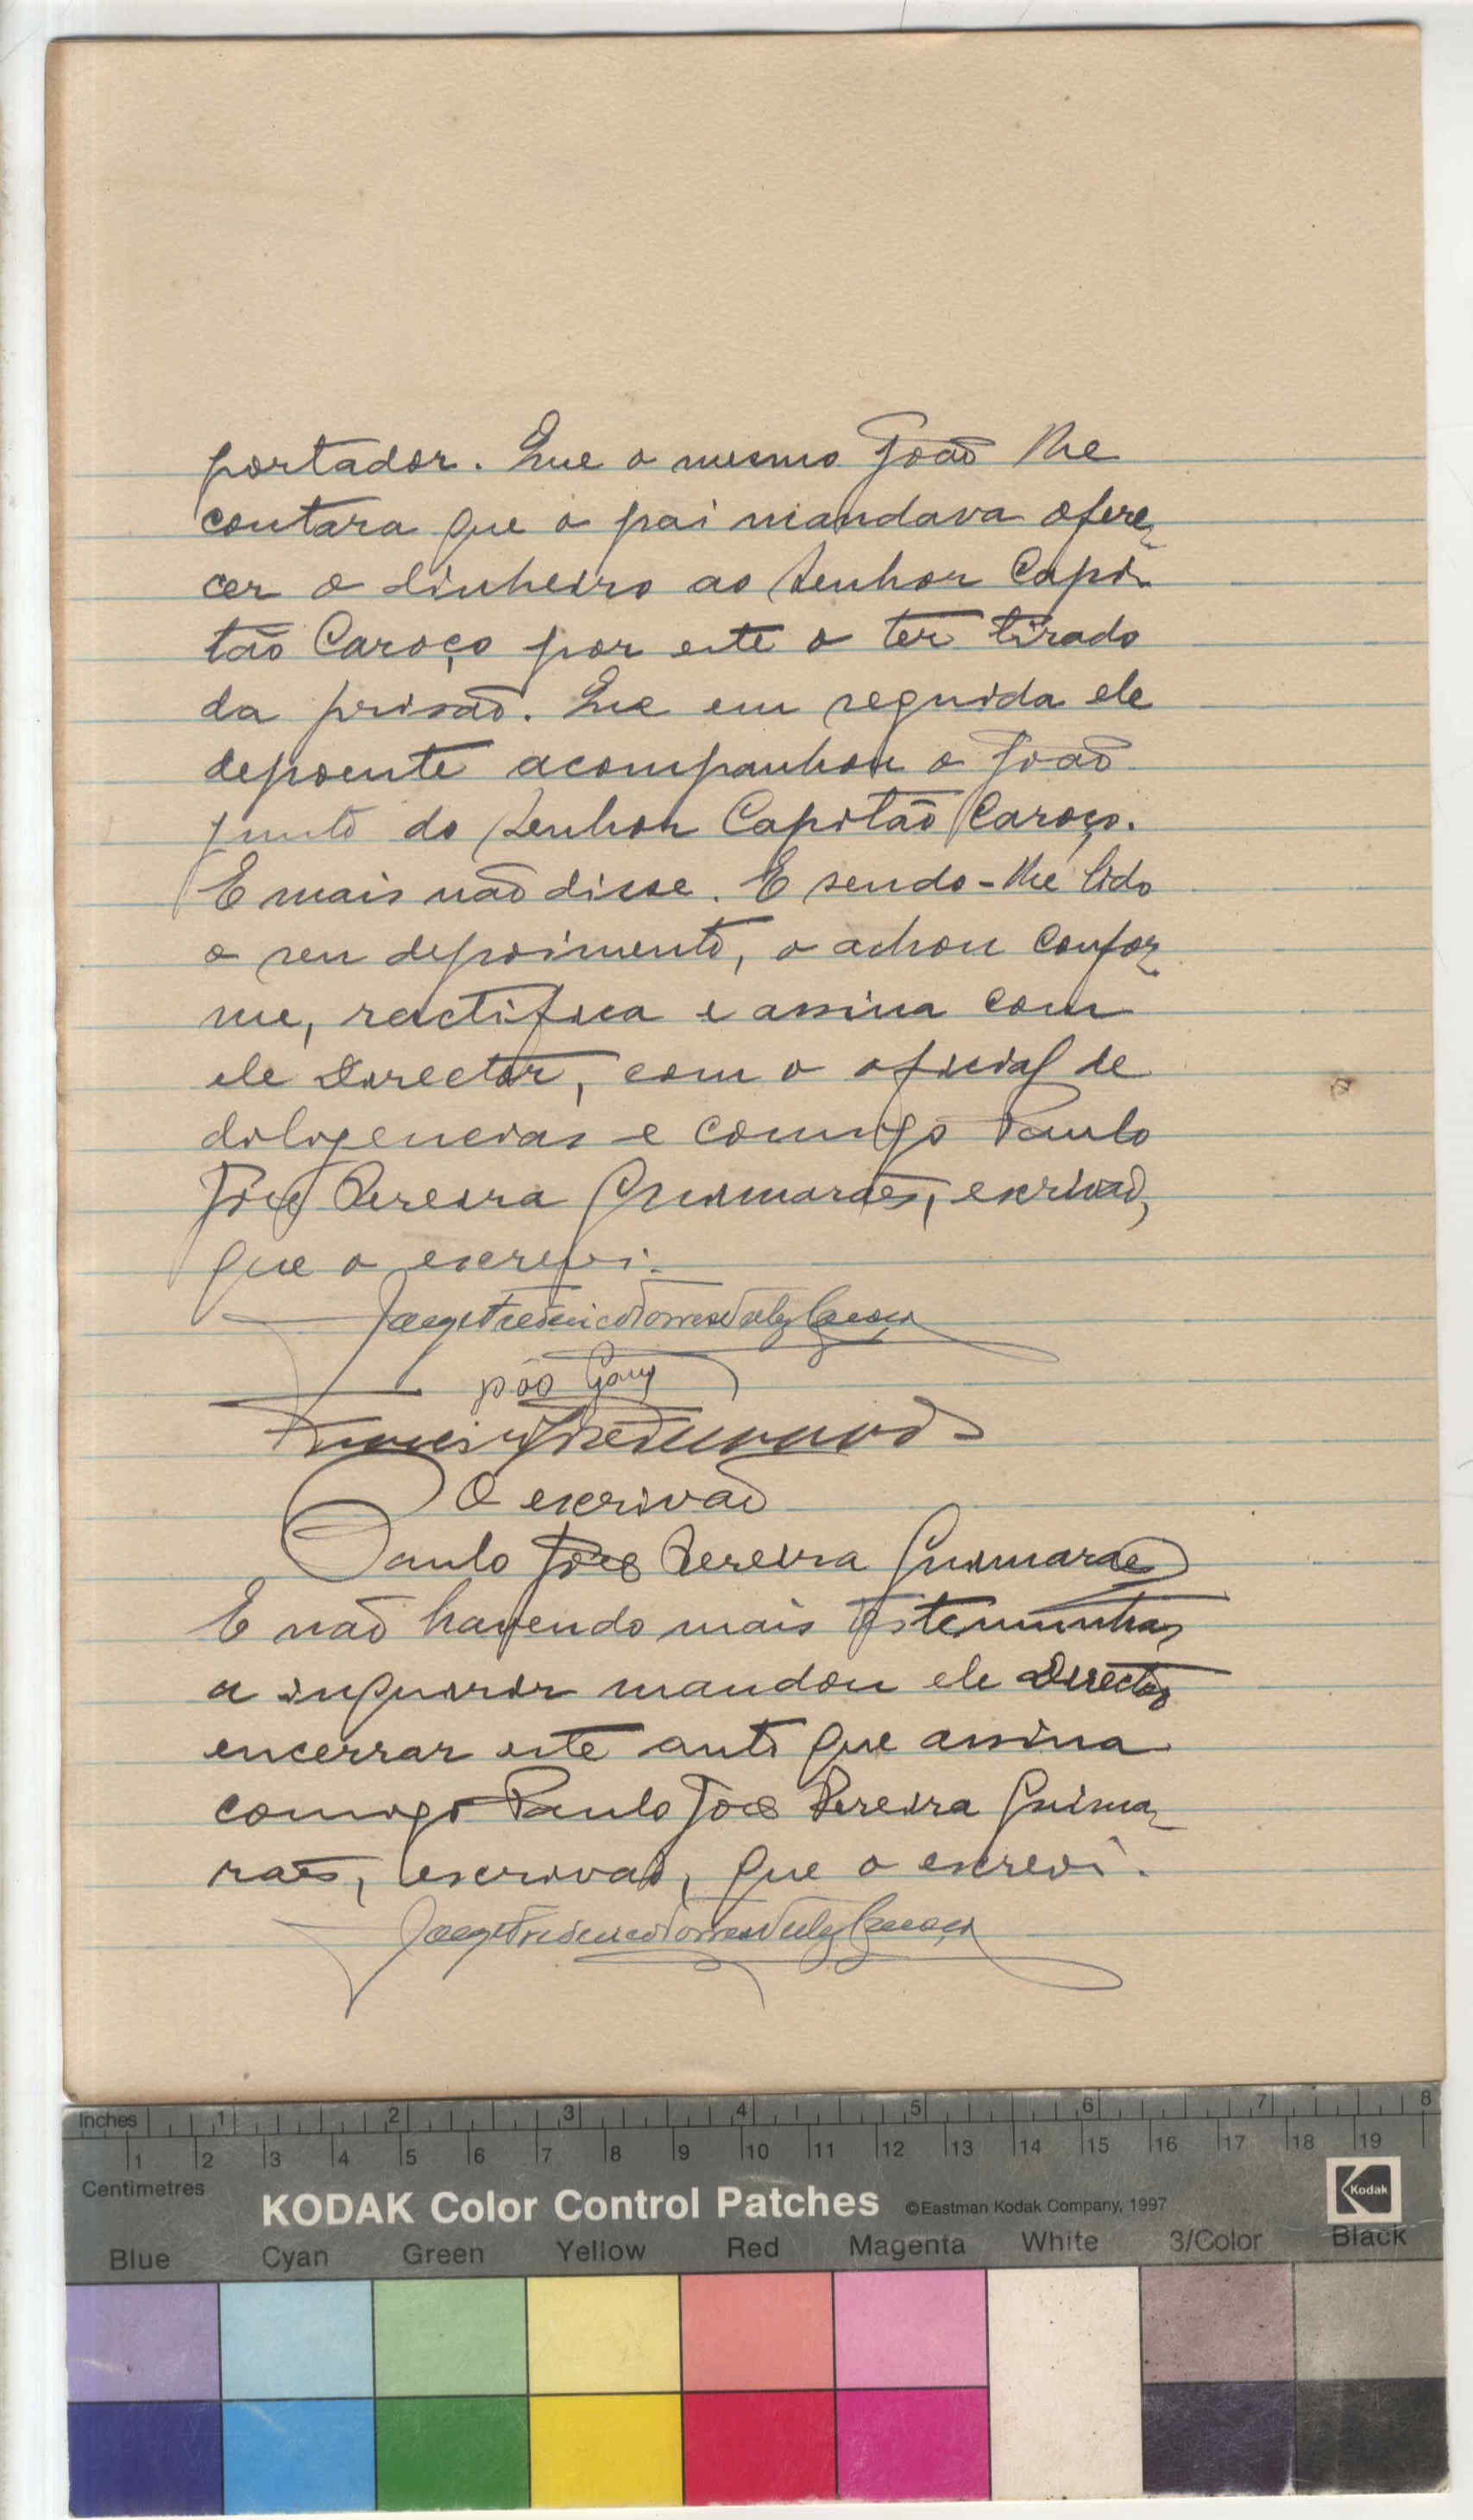 portador. Que o mesmo João lhe
contara que o pai mandava ofere-
cer o dinheiro ao Senhor Capi-
tão Caroço por este o ter tirado
da prisão. Que em seguida ele
depoente acompanhou o João
junto do Senhor Capitão Caroço.
E mais não disse. E sendo-lhe lido
o seu depoimento, o achou confor-
me, rectifica e assina com
ele Director, com o oficial de
diligencias e comigo Paulo
José Pereira Guimarães, escrivão,
que o escrevi.
Jorge Frederico Torres Velez Caroço
João
O escrivão
Paulo José Pereira Guimarães
E não havendo mais testemunhas
a inquirir mandou ele Director
encerrar este auto que assina
comigo Paulo José Pereira Guima-
rães, escrivão, que o escrevi.
Jorge Frederico Torres Velez Caroço
Inches 1 2 3 4 5 6 7 8
1 2 3 4 5 6 7 8 9 10 11 12 13 14 15 16 17 18 19
Centimetres
KODAK Color Control Patches ©Eastman Kodak Company, 1997 Kodak
Blue Cyan Green Yellow Red Magenta White 3/Color Black